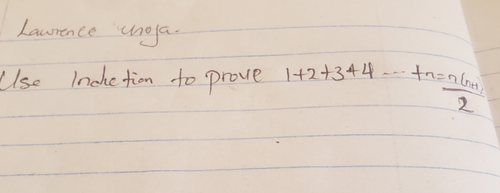 Lawrence choja.
Use Induction to prove 1+2+3+4 ... +n = n(n+1)/2